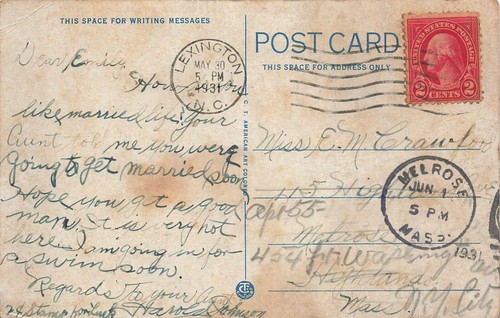 THIS SPACE FOR WRITING MESSAGES
POST CARD
THIS SPACE FOR ADDRESS ONLY
LEXINGTON
MAY 30
5 PM
1931
N.C.
UNITED STATES POSTAGE
2 CENTS 2
Dear Emily,
How you
like married life. your
Aunt told me you were
going to get married soon.
Hope you get a good
man, it is very hot
here. I am going in for
a swim soon.
Regards to your
Harold Johnson
2¢ Stamp for Luck
C. T. AMERICAN ART COLORED
Miss, E. M. Crawford
115 High
apt 55
Melrose
454 Ft. Washington
Highlands
Mass.
N.Y. City
MELROSE
JUN 1
5 PM
1931
MASS.